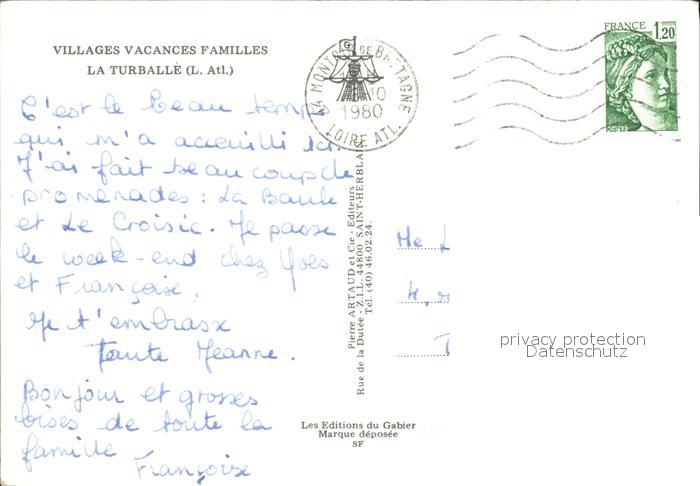 VILLAGES VACANCES FAMILLES
LA TURBALLE (L. Atl.)
C'est le beau temps
qui m'a acceuilli ici.
J'ai fait beaucoup de
promenades : La Baule
et Le Croisic. Je passe
le week-end chez Yves
et Françoise.
Je t'embrasse
Tante Jeanne.
Bonjour et grosses
bises de toute la
famille
Françoise
44 MONTOIR DE BRETAGNE
10
1980
LOIRE ATL.
FRANCE 1,20
POSTES
Pierre ARTAUD et Cie - Editeurs
Rue de la Dutée - Z.I.L. 44800 SAINT-HERBLAIN
Tél. (40) 46.02.24.
Me L
privacy protection
Datenschutz
Les Editions du Gabier
Marque déposée
SF